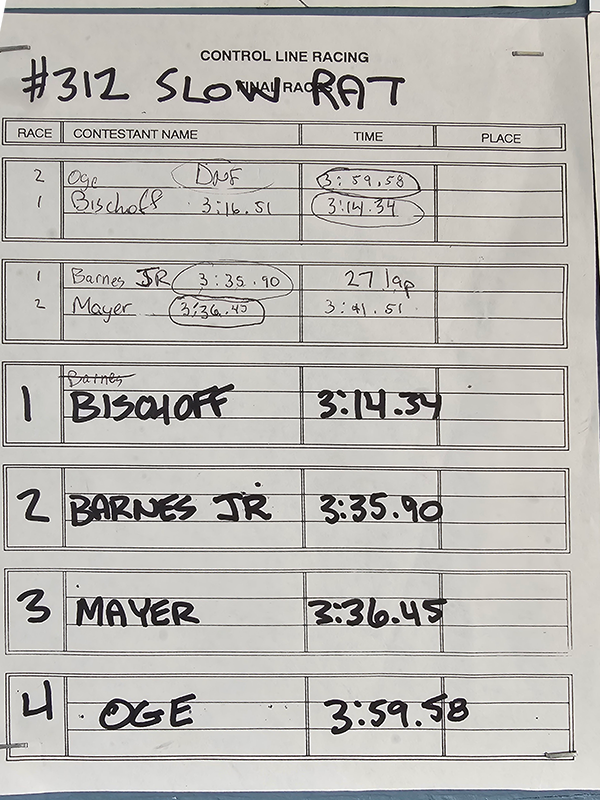 CONTROL LINE RACING
FINAL RACES
#312 SLOW RAT
RACE CONTESTANT NAME TIME PLACE
2 Oge DNF 3:59.58
1 Bischoff 3:16.51 3:14.34
1 Barnes JR 3:35.90 27 lap
2 Mayer 3:36.45 3:41.51
Barnes
1 BISCHOFF 3:14.34
2 BARNES JR 3:35.90
3 MAYER 3:36.45
4 OGE 3:59.58